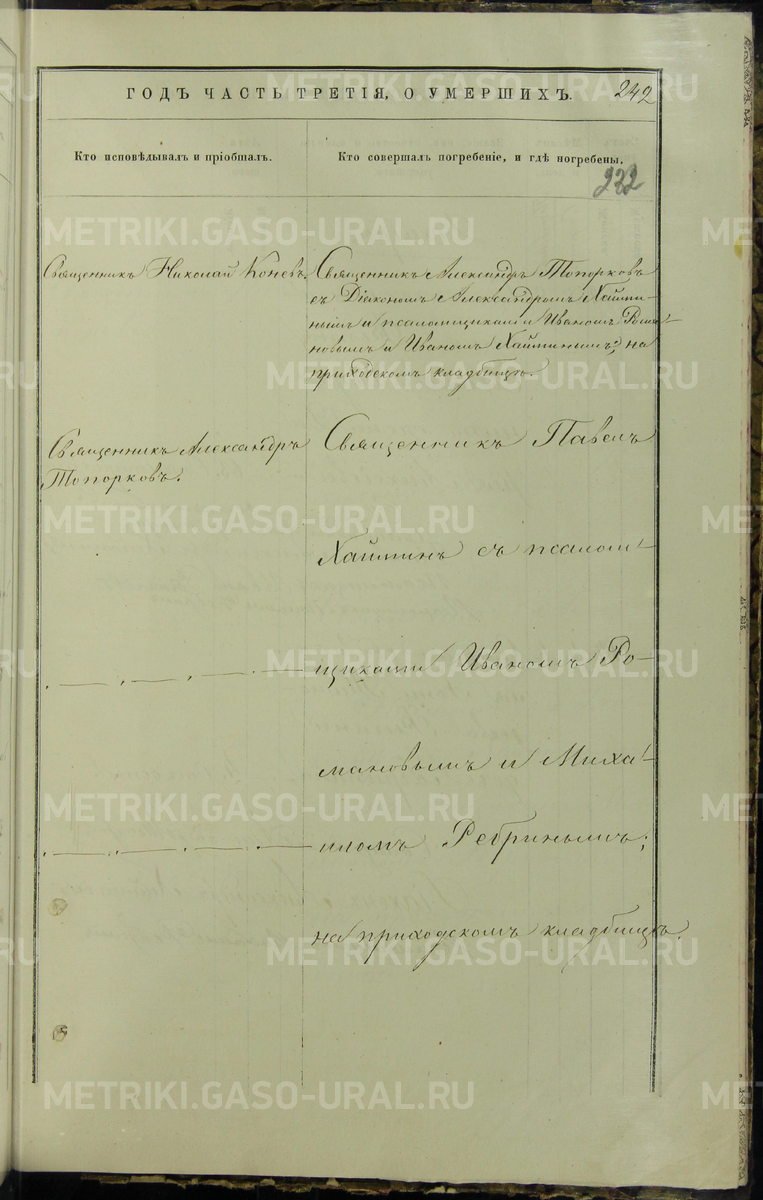 ГОДЪ ЧАСТЬ ТРЕТІЯ, О УМЕРШИХЪ.
242
Кто исповѣдывалъ и пріобщалъ.
Кто совершалъ погребеніе, и гдѣ погребены.
232
Священникъ Николай Коневъ.
Священникъ Александръ Топорковъ
съ Діакономъ Александромъ Хайми-
нымъ и псаломщиками Иваномъ Рома-
новымъ и Иваномъ Хайминымъ; на
приходскомъ кладбищѣ.
Священникъ Александръ
Топорковъ.
Священникъ Павелъ
Хайминъ съ псалом-
щиками Иваномъ Ро-
мановымъ и Миха-
иломъ Ребринымъ;
на приходскомъ кладбищѣ.
METRIKI.GASO-URAL.RU